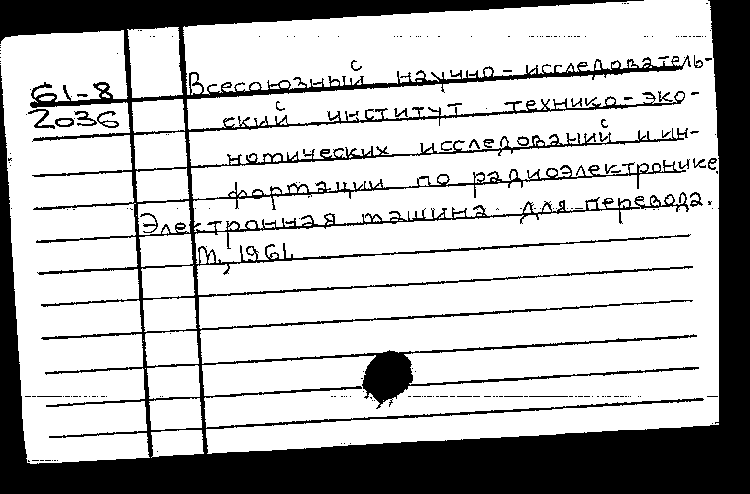 61-8 Всесоюзный научно-исследователь-
2036 ский институт технико-эко-
номических исследований и ин-
формации по радиоэлектронике
Электронная машина для перевода.
М., 1961.